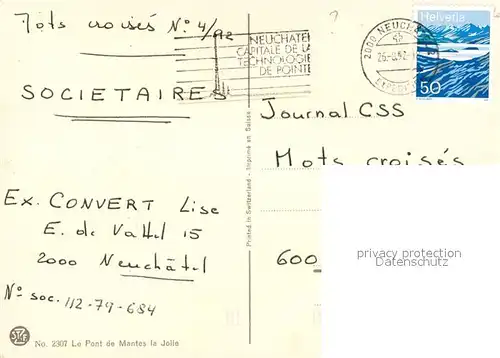 Mots croisés N° 4/92
SOCIETAIRES
Ex. CONVERT Lise
E. de Vattel 15
2000 Neuchâtel
N° soc. 112-79-684
No. 2307 Le Pont de Mantes la Jolie
Printed in Switzerland - Imprimé en Suisse
NEUCHATEL
CAPITALE DE LA
TECHNOLOGIE
DE POINTE
2000 NEUCHÂ
Helvetia
50
Journal CSS
Mots croisés
600
privacy protection
Datenschutz